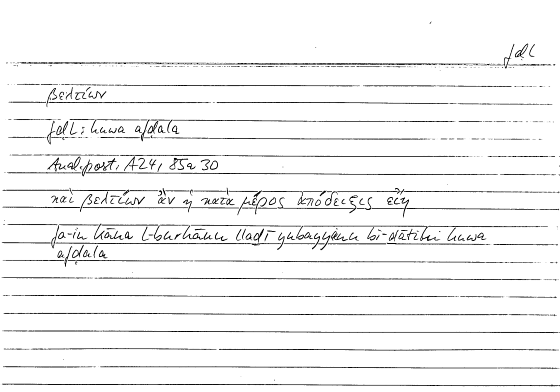 fḍl
βελτίων
fḍl: huwa afḍala
Anal. post. A24, 85a30
καὶ βελτίων ἂν ἡ κατὰ μέρος ἀπόδειξις εἴη
fa-in kāna l-burhānu lladī yubayyanu bi-dātihi huwa
afḍala